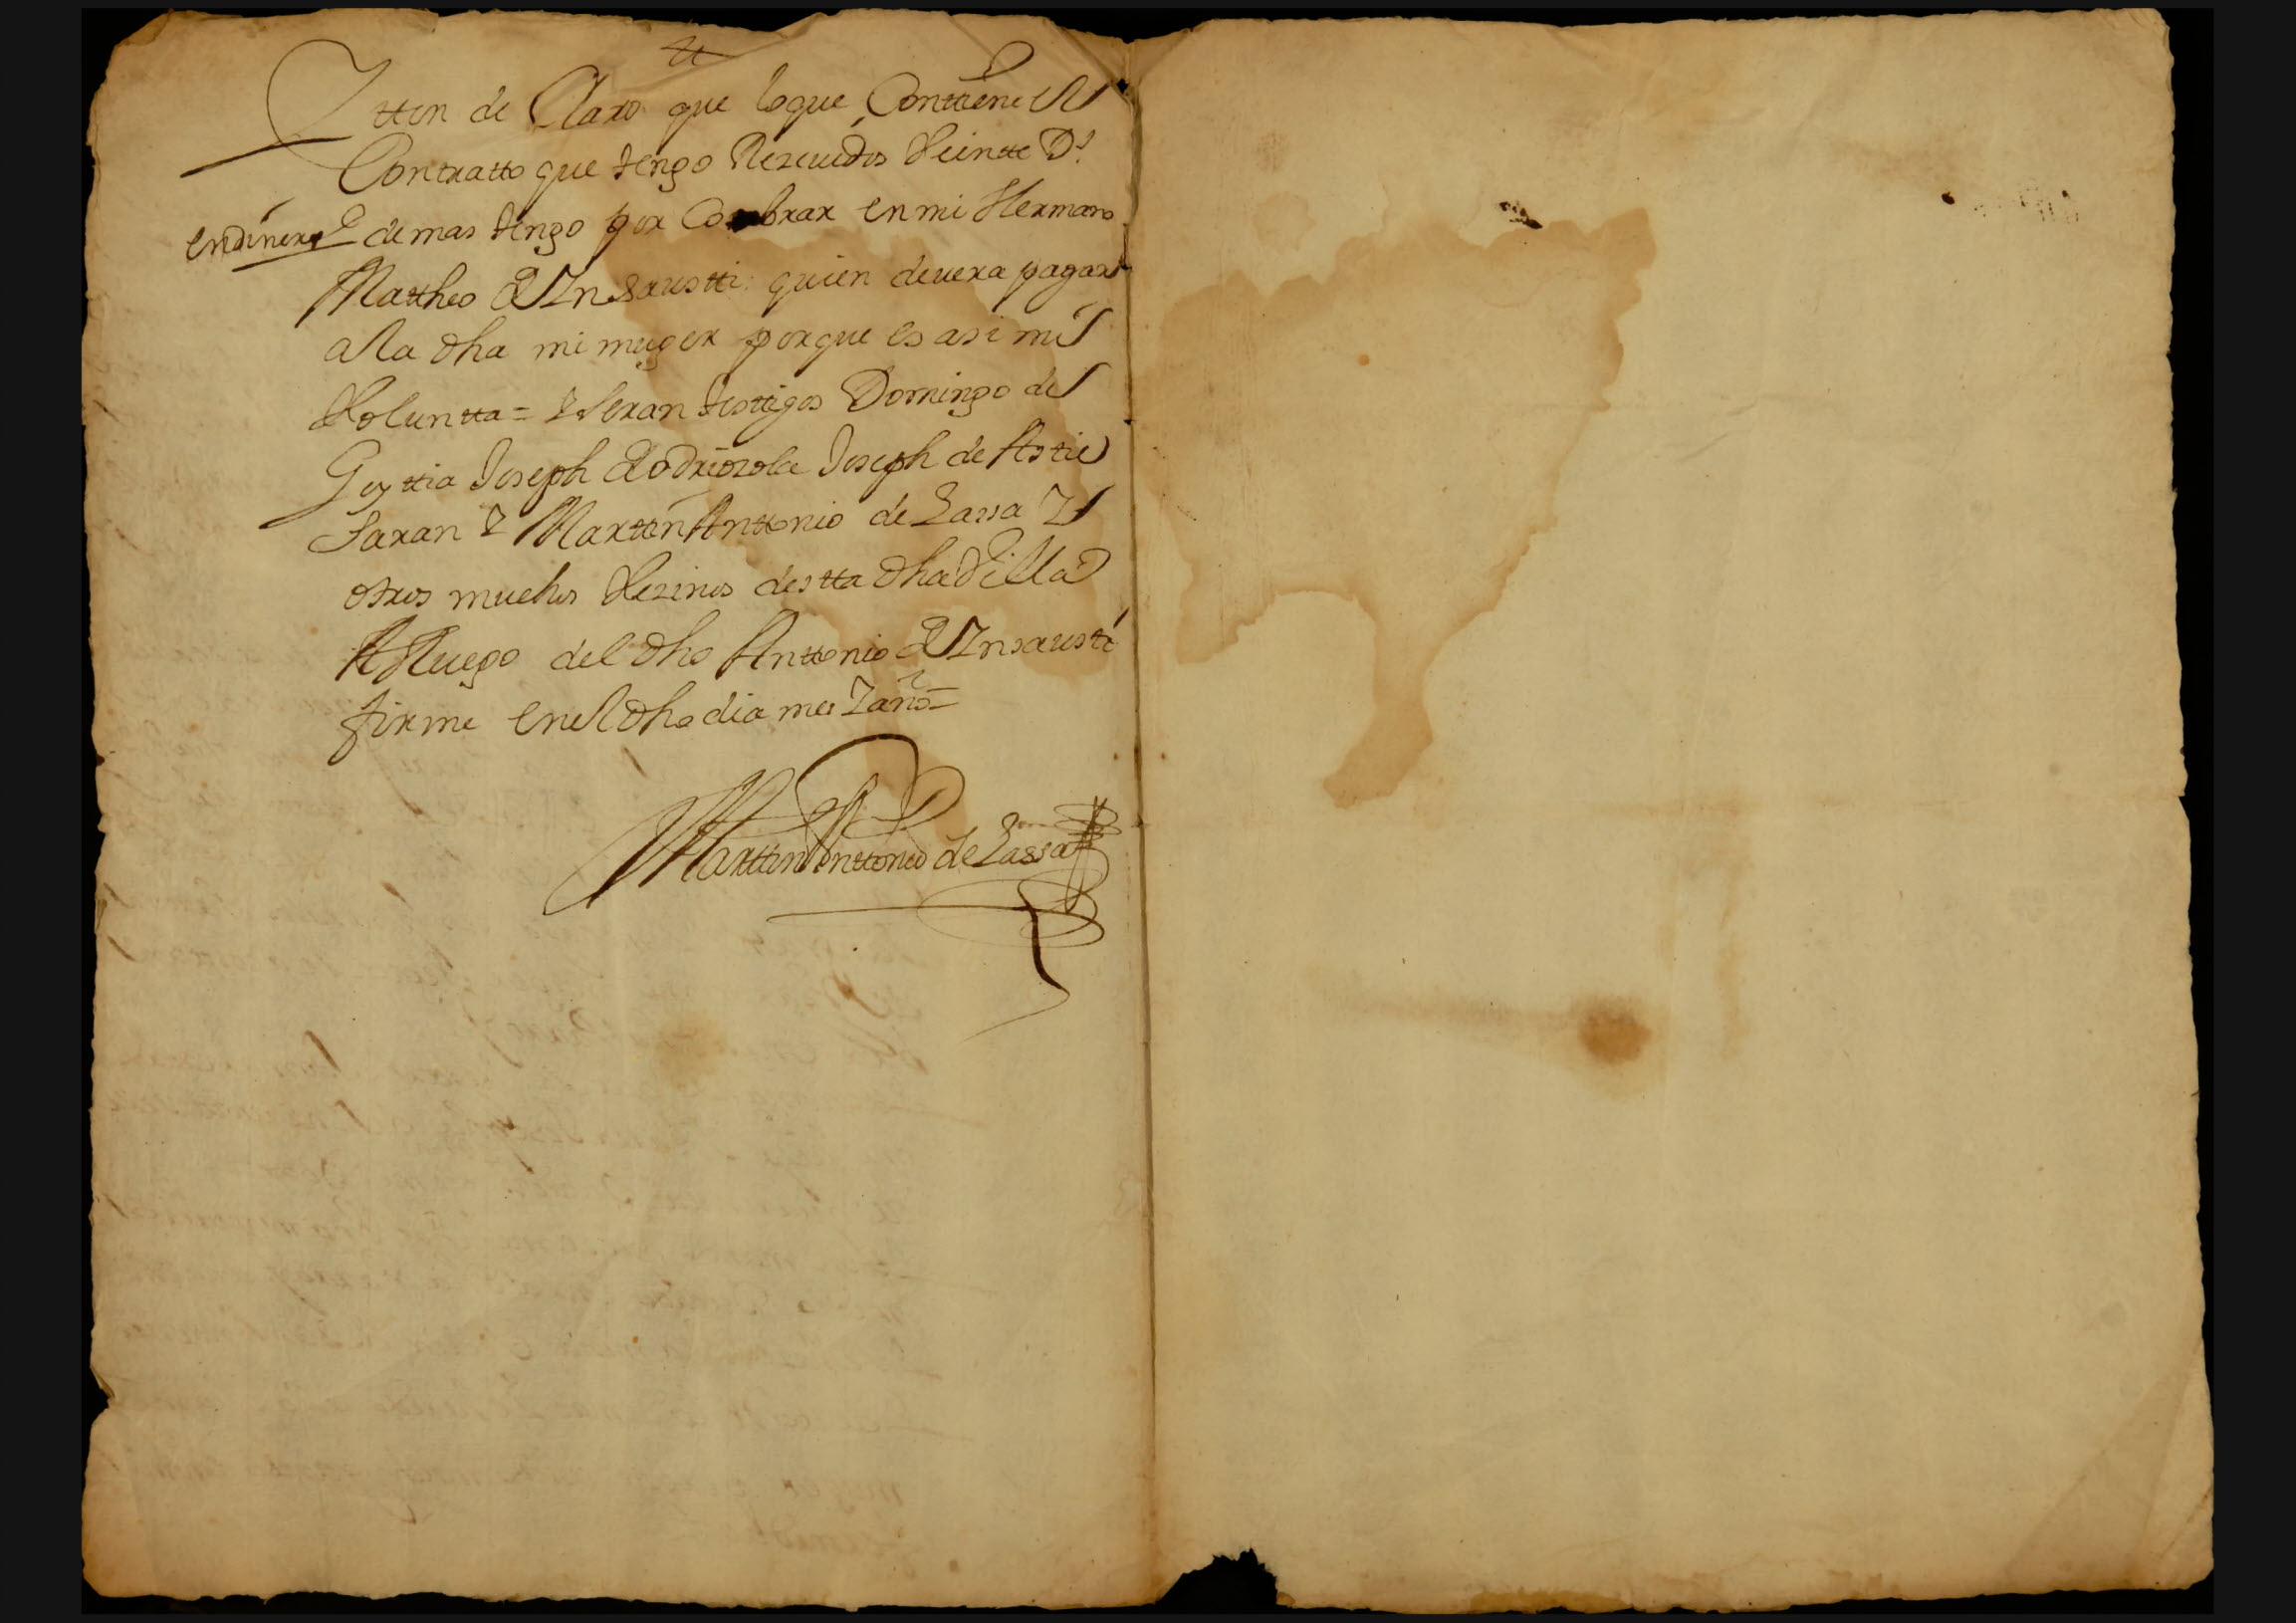 Ytten de Claro que loque Conttiene el
Contratto que tengo Rezeuidos Veintte Ds
en dinero E demas tengo por Cobrar en mi Hermano
Mattheo de Ynsaustti quien deuera pagar
a la dha mi muger porque es asi mi
Voluntta = E seran testtigos Domingo de
Goyttia Joseph de odriozola Joseph de Astie
Saran E Marttin Anttonio de Lassa Y
otros muchos Vezinos destta dha Villa
A Ruego del dho Anttonio de Ynsausti
firme en el dho dia mes Y año =
Marttin Anttonio de Lassa